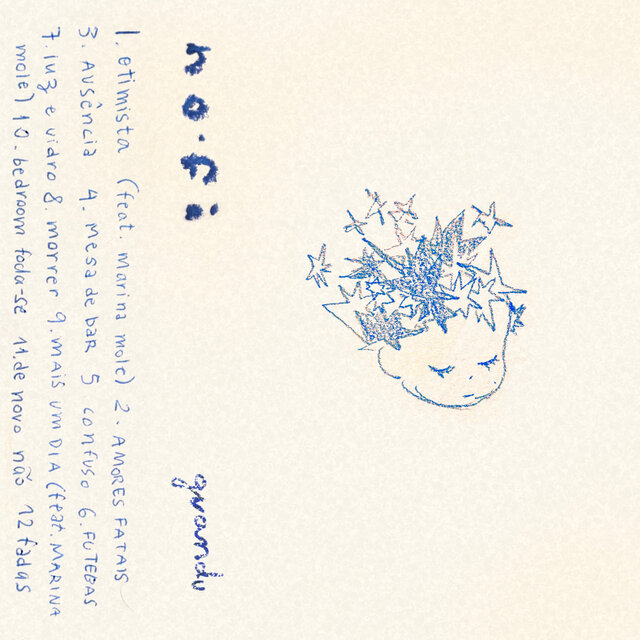 no.fi: guandu
1. otimista (feat. marina mole) 2. AMORES FATAIS
3. AUSênciA 4. mesa de bAR 5 confuso 6. FUTEBAS
7. luz e vidro 8. morrer 9. MAIS UM DIA (feat. MARINA
mole) 10. bedroom foda-se 11.de novo não 12 fadas